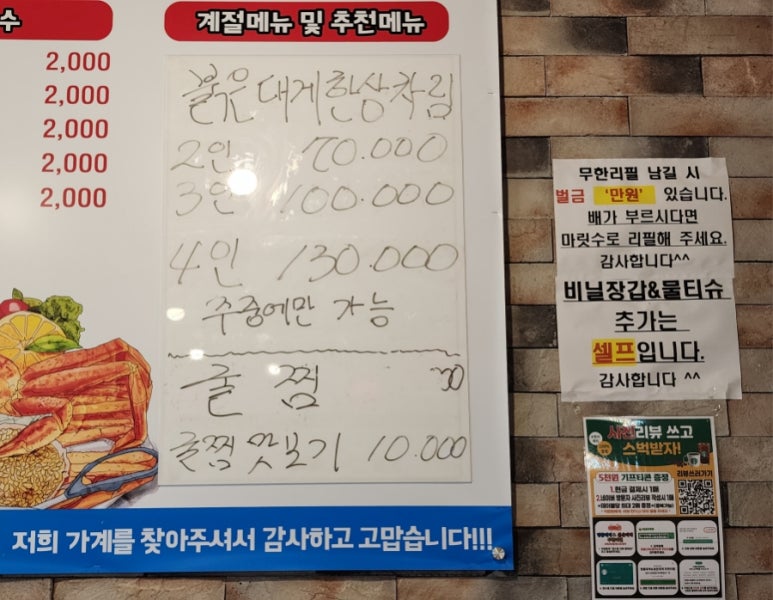 수
2,000
2,000
2,000
2,000
2,000
계절메뉴 및 추천메뉴
붉은대게한상차림
2인 70.000
3인 100.000
4인 130.000
주중에만 가능
굴 찜
굴찜 맛보기 10.000
저희 가게를 찾아주셔서 감사하고 고맙습니다!!!
무한리필 남길 시
벌금 '만원' 있습니다.
배가 부르시다면
마릿수로 리필해 주세요.
감사합니다^^
비닐장갑&물티슈
추가는
셀프입니다.
감사합니다 ^^
사진리뷰 쓰고
스벅받자!
리뷰쓰러가기
5천원 기프티콘 증정
1.현금 결제시 1매
2.네이버 방문자 사진리뷰 작성시 1매